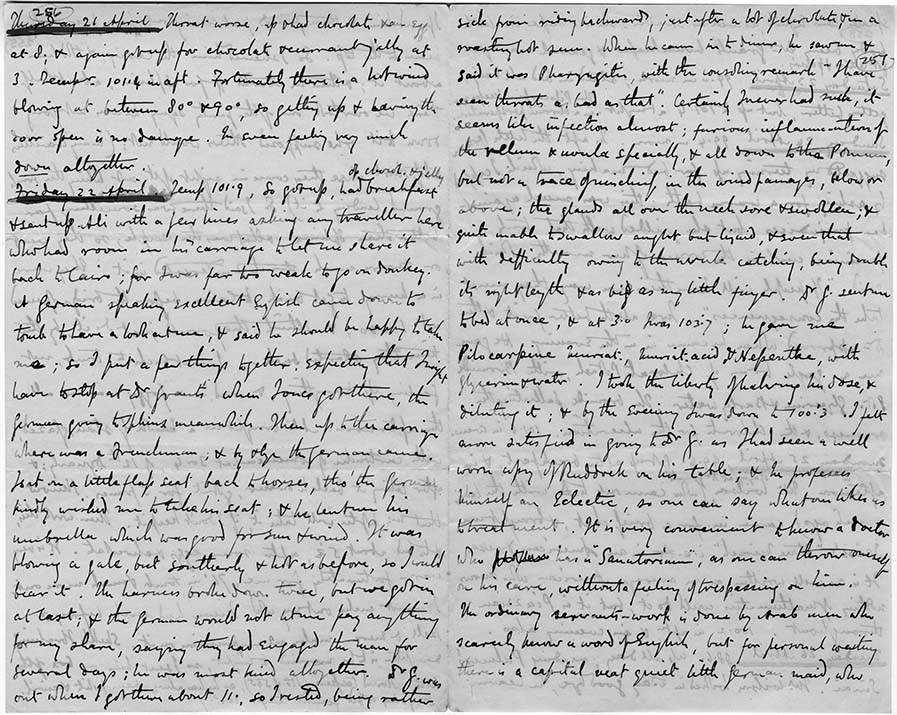 256
Thursday 21 April Throat worse, up & had chocolate & an egg
at 8, & again got up for chocolate & currant jelly at
3. Temper. 101.4 in aft. Fortunately there is a hot wind
blowing at between 80° & 90°, so getting up & having the
door open is no damage. In even feeling very much
down altogether.
Friday 22 April. Temp 101.9, So got up, had breakfast
of choc'l. & jelly
& sent up Ali with a few lines asking any traveller here
who had room in his carriage to let me share it
back to Cairo; for I was far too weak to go on donkey.
A German speaking excellent English came down to
tomb to have a look at me, & said he should be happy to take
me; so I put a few things together, expecting that I might
have to stop at Dr Grant's when I once got there, the
German going to Sphinx meanwhile. Then up to the carriage
where was a Frenchman; & by & bye the German came.
I sat on a little flap seat back to horses, tho' the German
kindly wished me to take his seat; & he lent me his
umbrella which was good for sun & wind. It was
blowing a gale, but southerly & hot as before, so I could
bear it. The harness broke down twice, but we got in
at last; & the German would not let me pay anything
for my share, saying they had engaged the man for
several days; he was most kind altogether. Dr G. was
out when I got there about 11, so I rested, being rather
257
sick from riding backward, just after a lot of chocolate & in a
roasting hot sun. When he came in to dinner, he saw me &
said it was Pharyngitis, with the consoling remark "I have
seen throats as bad as that". Certainly I never had such, it
seems like infection almost; furious inflammation of
the velum & uvula specially, & all down to the
but not a trace of mischief in the wind passages, below or
above; the glands all over the neck sore & swollen; &
quite unable to swallow aught but liquid, & even that
with difficulty owing to the uvula catching, being double
its right length & as big as my little finger. Dr G. sent me
to bed at once, & at 3.0 I was 103.7; he gave me
Pilocarpine Muriat., Muriat. acid Dil Nepenthe, with
Glycerin & water. I took the liberty of halving his dose, &
diluting it; & by the Evening I was down to 100.3. I felt
more satisfied in going to Dr G. as I had seen a well
worn copy of Ruddock on his table; & he professes
himself an Eclectic, so one can say what one likes as
to treatment. It is very convenient to know a doctor
who has a "Sanatorium", as one can throw oneself
on his care, without a feeling of trespassing on him.
The ordinary servants-work is done by Arab men who
scarcely know a word of English, but for personal waiting
there is a capital neat quiet little German maid, who